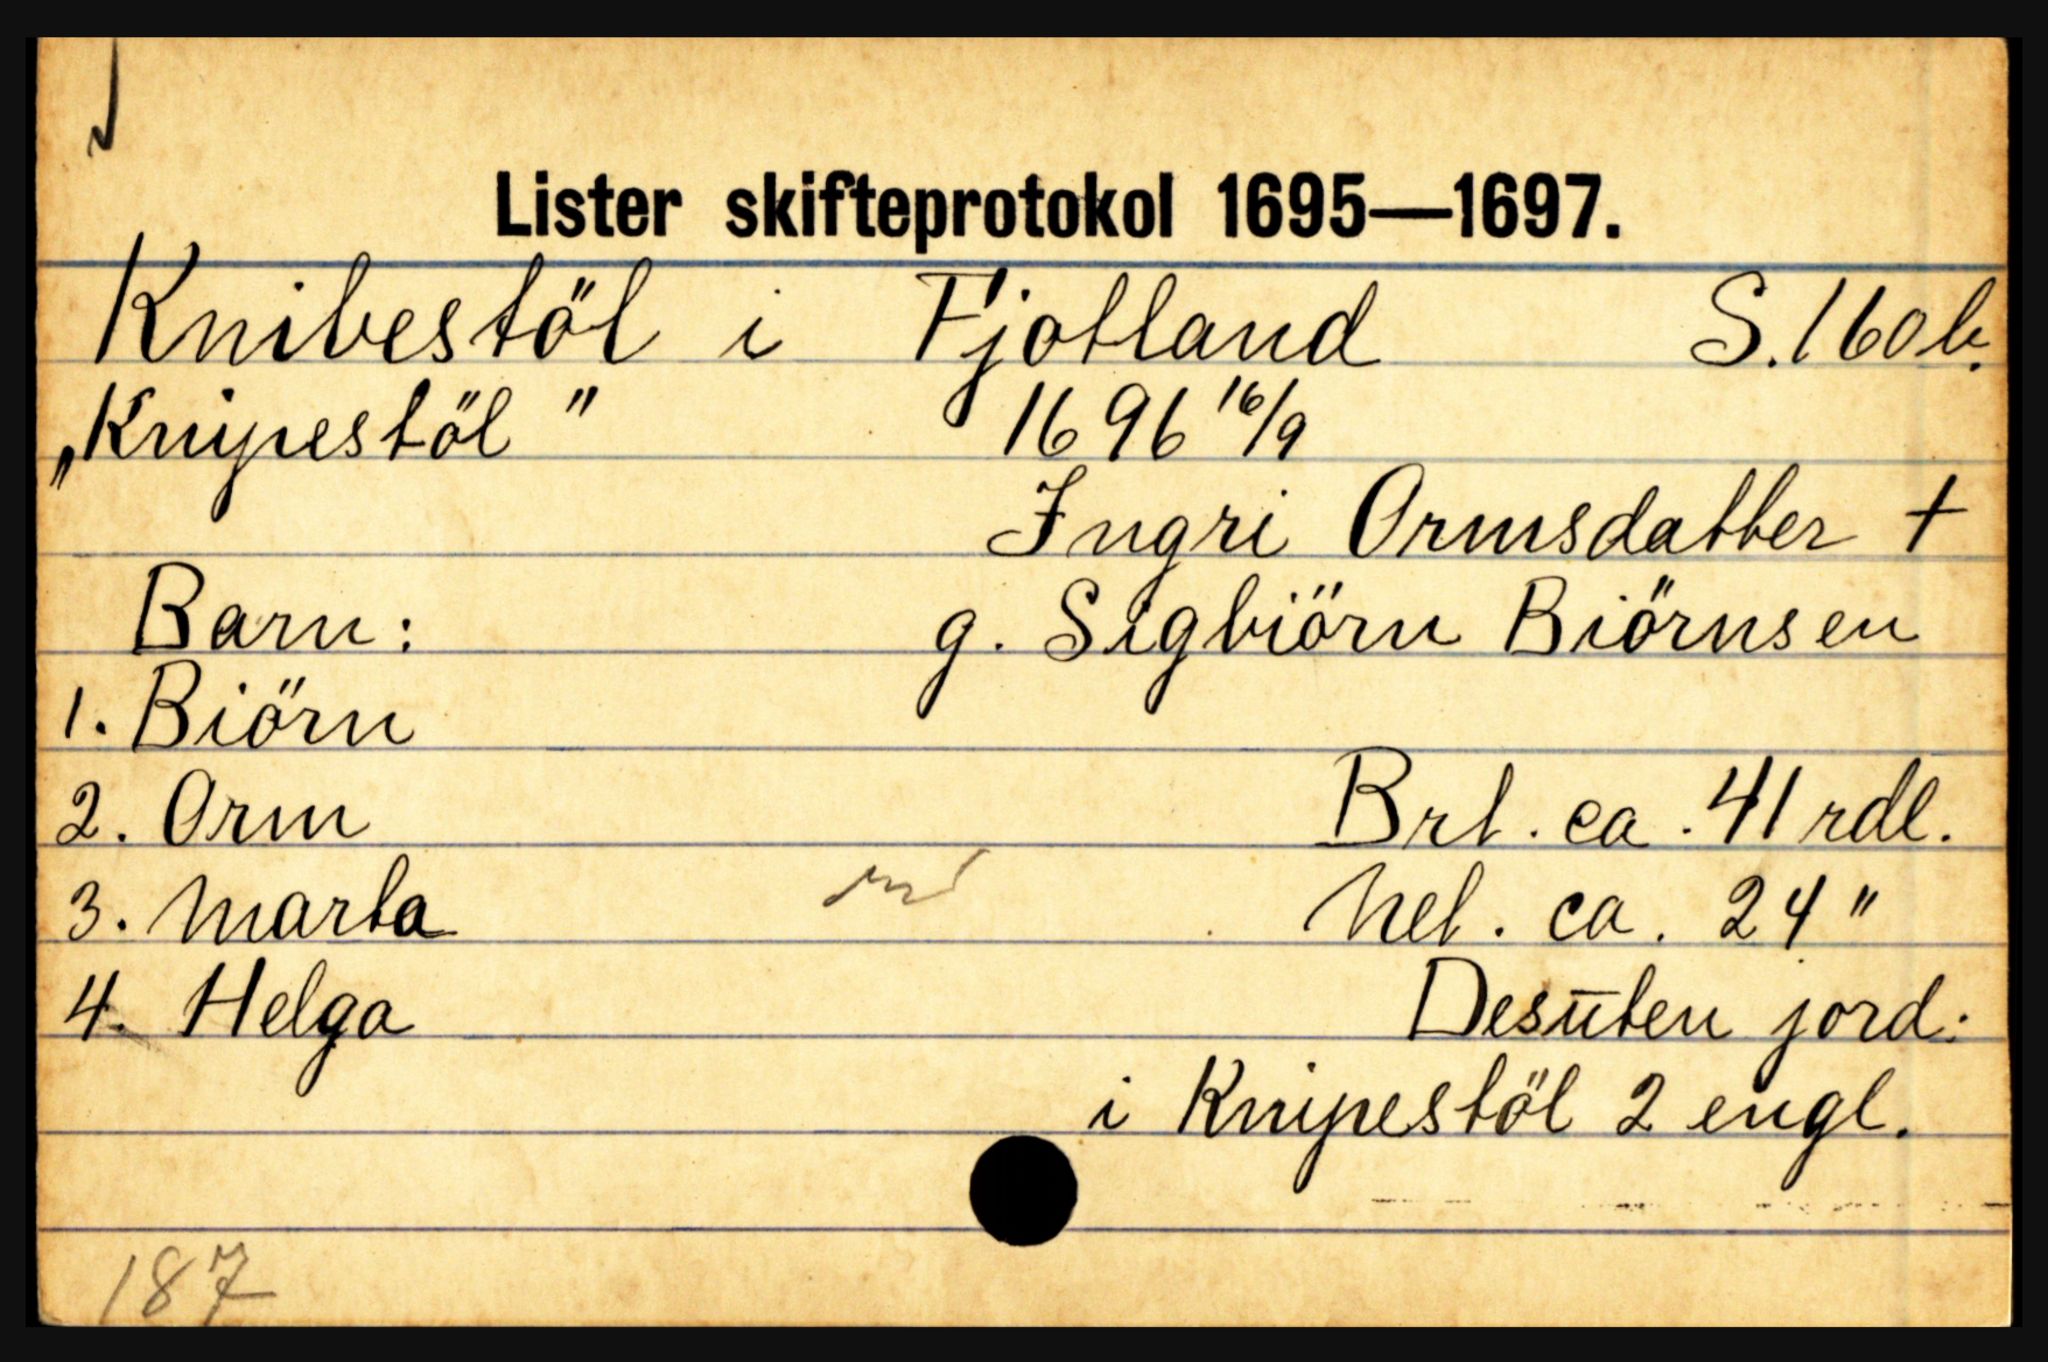 Lister skifteprotokol 1695—1697.
Knibestöl i Fjotland S. 160 b.
„Knipestöl" 1696 16/9
Ingri Ormsdatter †
Barn: g. Sigbiörn Biörnsen
1. Biörn
2. Orm Brt. ca. 41 rdl.
3. Marta Net. ca. 24 "
4. Helga Desūten jord:
i Knipestöl 2 engl.
187